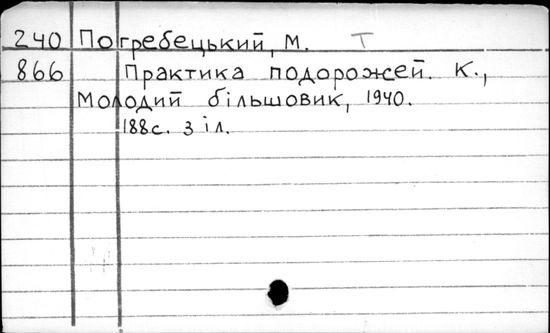 240 Погребецький, М. Т
866 Практика подорожей. К.,
Молодий більшовик, 1940.
188с. з іл.